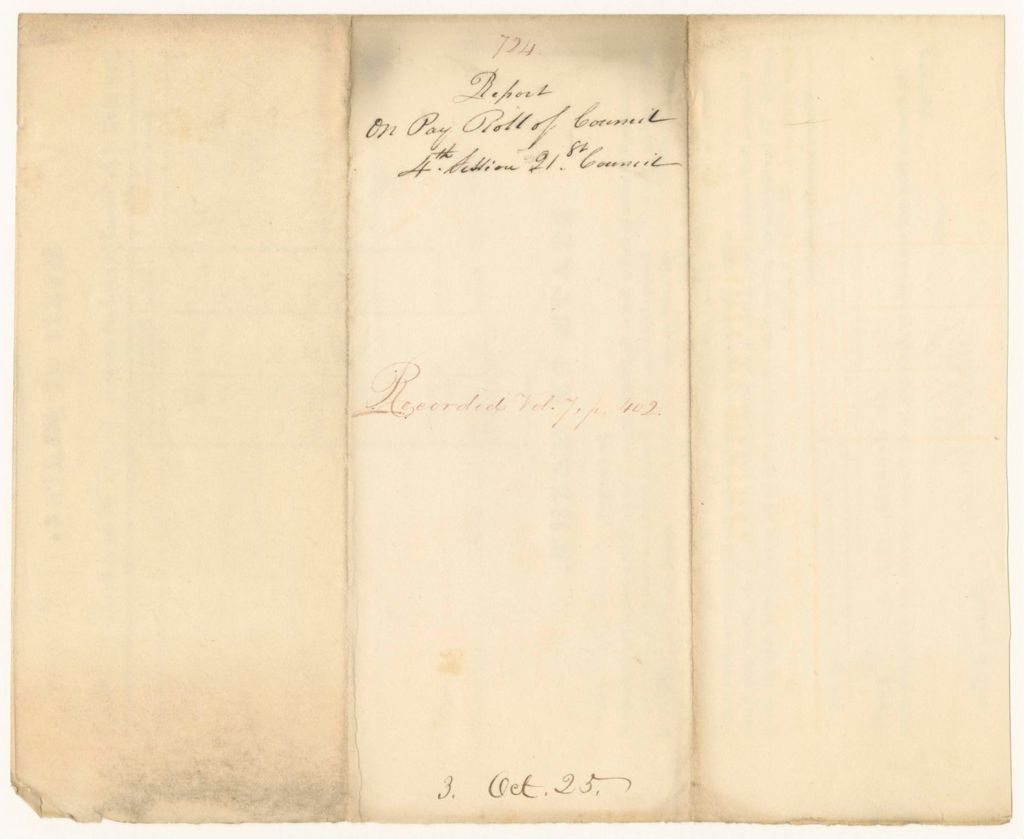 724.
Report
On Pay Roll of Council
4th. Session 21.st Council
Recorded Vol. 7, p. 402.
3. Oct. 25.